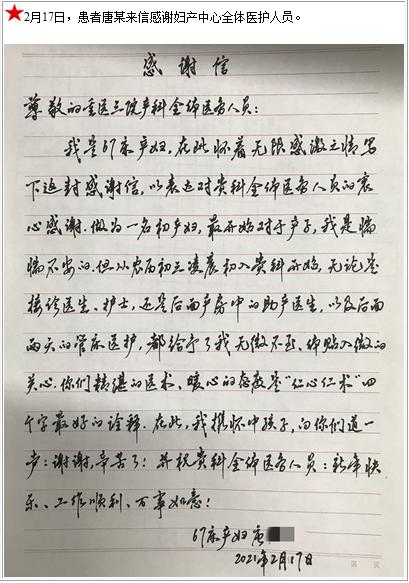 ★2月17日，患者唐某来信感谢妇产中心全体医护人员。
感谢信
尊敬的重医三院产科全体医务人员：
我是67床产妇，在此怀着无限感激之情写
下这封感谢信，以表达对贵科全体医务人员的衷
心感谢。做为一名初产妇，最开始对于产子，我是惴
惴不安的。但从农历初三凌晨初入贵科开始，无论是
接诊医生、护士，还是后面产房中的助产医生，以及后面
两天的管床医护，都给予了我无微不至、体贴入微的
关心。你们精湛的医术、暖心的态度是“仁心仁术”四
个字最好的诠释。在此，我携怀中孩子，向你们道一
声：谢谢，辛苦了！并祝贵科全体医务人员：新年快
乐、工作顺利、万事如意！
67床产妇 唐
2021年2月17日
第 页